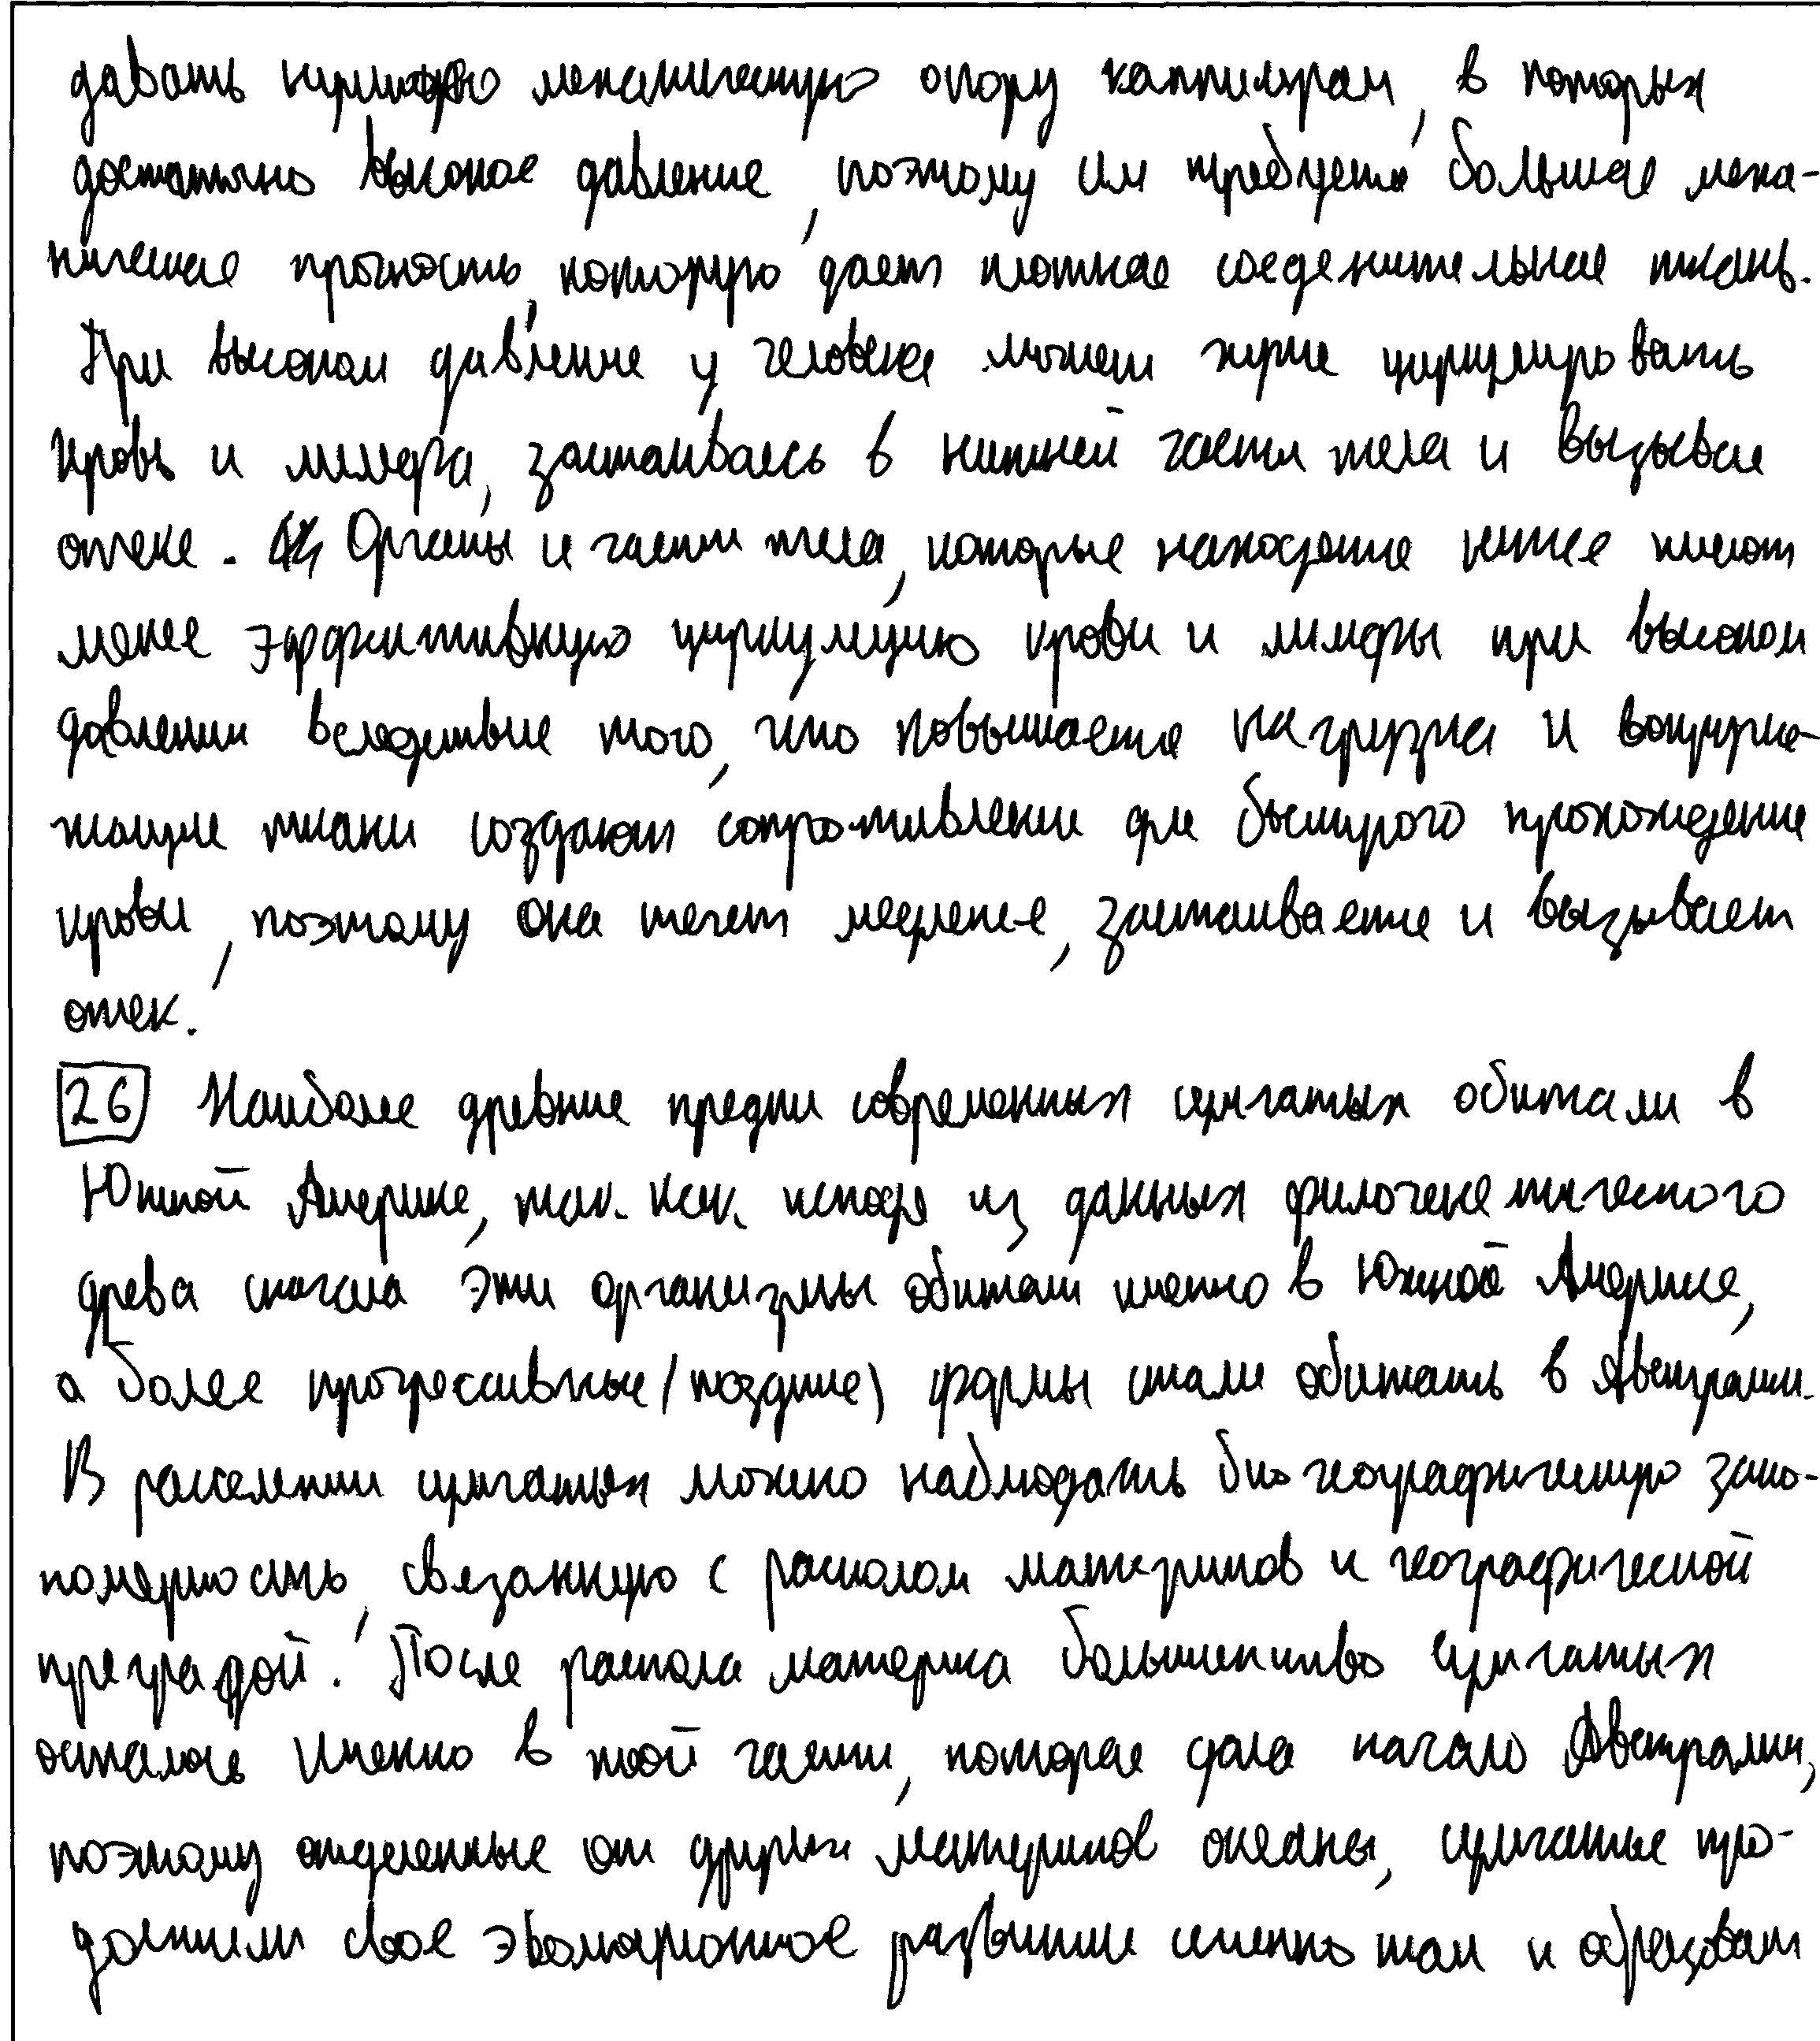 давать механическую опору каппилярам, в которых
достаточно высокое давление, поэтому им требуется большая меха-
ническая прочность, которую дает плотная соеденительная ткань.
При высоком давление у человека может хуже циркулировать
кровь и лимфа, застаиваясь в нижней части тела и вызывая
отеки. Органы и части тела, которые находятся ниже имеют
менее эффективную циркуляцию крови и лимфы при высоком
давлении вследствие того, что повышается нагрузка и
ткани создают сопротивление для быстрого прохождения
крови, поэтому она течет медленее, застаивается и вызывает
отек.
26 Наиболее древние предки современных сумчатых обитали в
Южной Америке, так как исходя из данных филогенетического
древа сначала эти организмы обитали именно в Южной Америке,
а более прогрессивные (поздние) формы стали обитать в Австралии.
В расселении сумчатых можно наблюдать биогеографическую зако-
номерность, связанную с расколом материков и географической
преградой. После раскола материка большинство сумчатых
осталось именно в той части, которая дала начало Австралии,
поэтому отделенные от других материков океаны, сумчатые про-
должили свое эволюционное развитие именно там и образовали